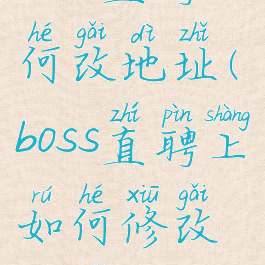 hé gǎi dì zhǐ
何改地址(
zhí pìn shàng
boss直聘上
rú hé xiū gǎi
如何修改